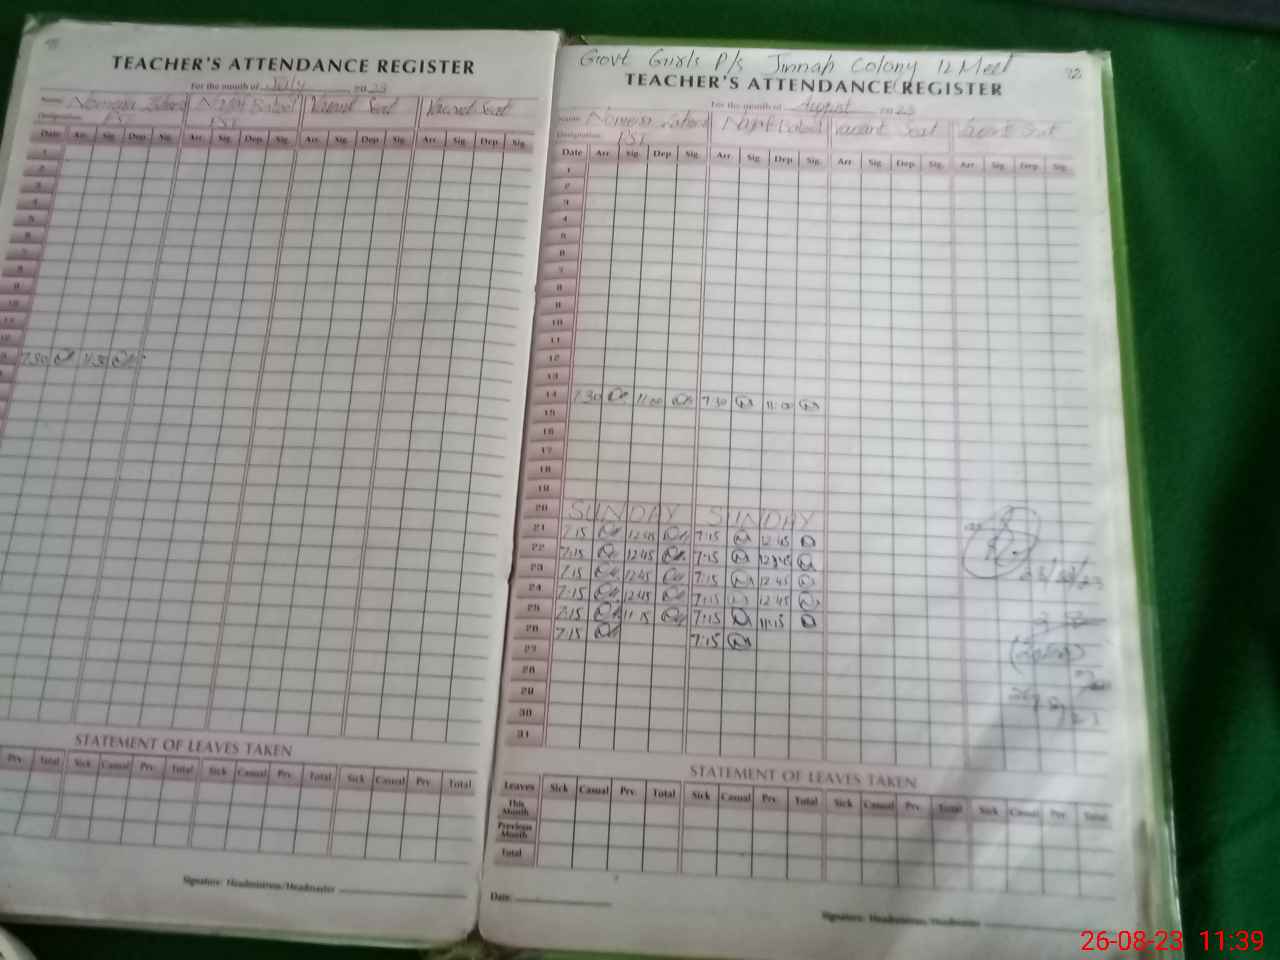 TEACHER'S ATTENDANCE REGISTER
For the month of July 2023
Name Vacant Seat Vacant Seat
Designation PST PST
Date Arr. Sig. Dep. Sig. Arr. Sig. Dep. Sig. Arr. Sig. Dep. Sig. Arr. Sig. Dep. Sig.
1
2
3
4
5
6
7
8
9
10
11
12
7:30 11:30
STATEMENT OF LEAVES TAKEN
Prv. Total Sick Casual Prv. Total Sick Casual Prv. Total Sick Casual Prv. Total
Signature: Headmistress/Headmaster
Govt Girls P/s Jinnah Colony 12 Meel
TEACHER'S ATTENDANCE REGISTER
For the month of August 2023
Name Vacant Seat Vacant Seat
Designation PST
Date Arr. Sig. Dep. Sig. Arr. Sig. Dep. Sig. Arr. Sig. Dep. Sig. Arr. Sig. Dep. Sig.
1
2
3
4
5
6
7
8
9
10
11
12
13
14 7:30 11:00 7:30 11:00
15
16
17
18
19
20 SUNDAY SUNDAY
21 7:15 12:45 7:15 12:45
22 7:15 12:45 7:15 12:45
23 7:15 12:45 7:15 12:45
24 7:15 12:45 7:15 12:45
25 7:15 11:15 7:15 11:15
26 7:15 7:15
27
28
29
30
31
STATEMENT OF LEAVES TAKEN
Leaves Sick Casual Prv. Total Sick Casual Prv. Total Sick Casual Prv. Total Sick Casual Prv. Total
This Month
Previous Month
Total
Date:
Signature: Headmistress/Headmaster
26-08-23 11:39